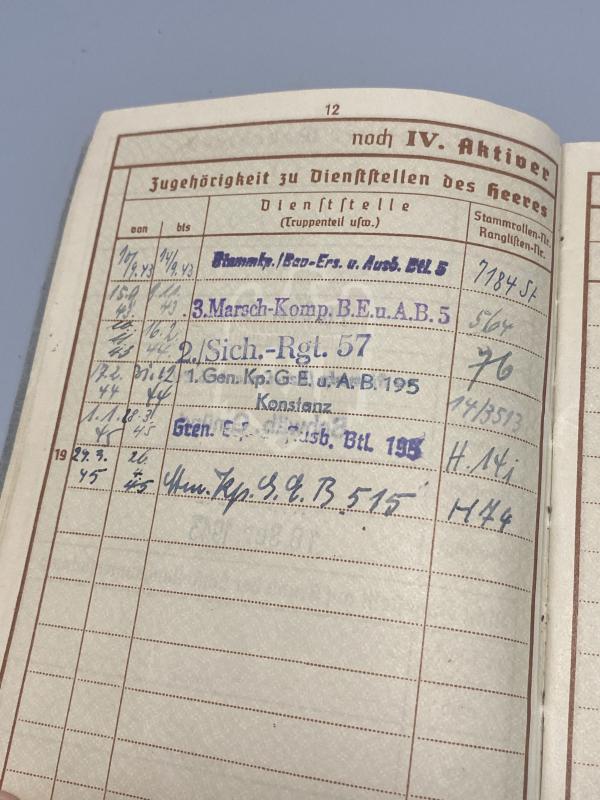 12
noch IV. Aktiver
Zugehörigkeit zu Dienststellen des Heeres
von bis Dienststelle (Truppenteil usw.) Stammrollen-Nr. Ranglisten-Nr.
10/9.43 14/9.43 Stammkp./Bau-Ers. u. Ausb. Btl. 5 7184 St
15.9. 43 43 3. Marsch-Komp. B.E.u.A.B. 5 564
43 16.2. 44 2./Sich.-Rgt. 57 76
17.2. 44 31.12. 44 1. Gen. Kp. G.E. u. A.B. 195 Konstanz 14/3513
1.1. 45 28.3. 45 Gren. Ausb. Btl. 195 H. 14j
19 29.3. 45 20. 4. 45 Kp. G.E.B. 515 H 74